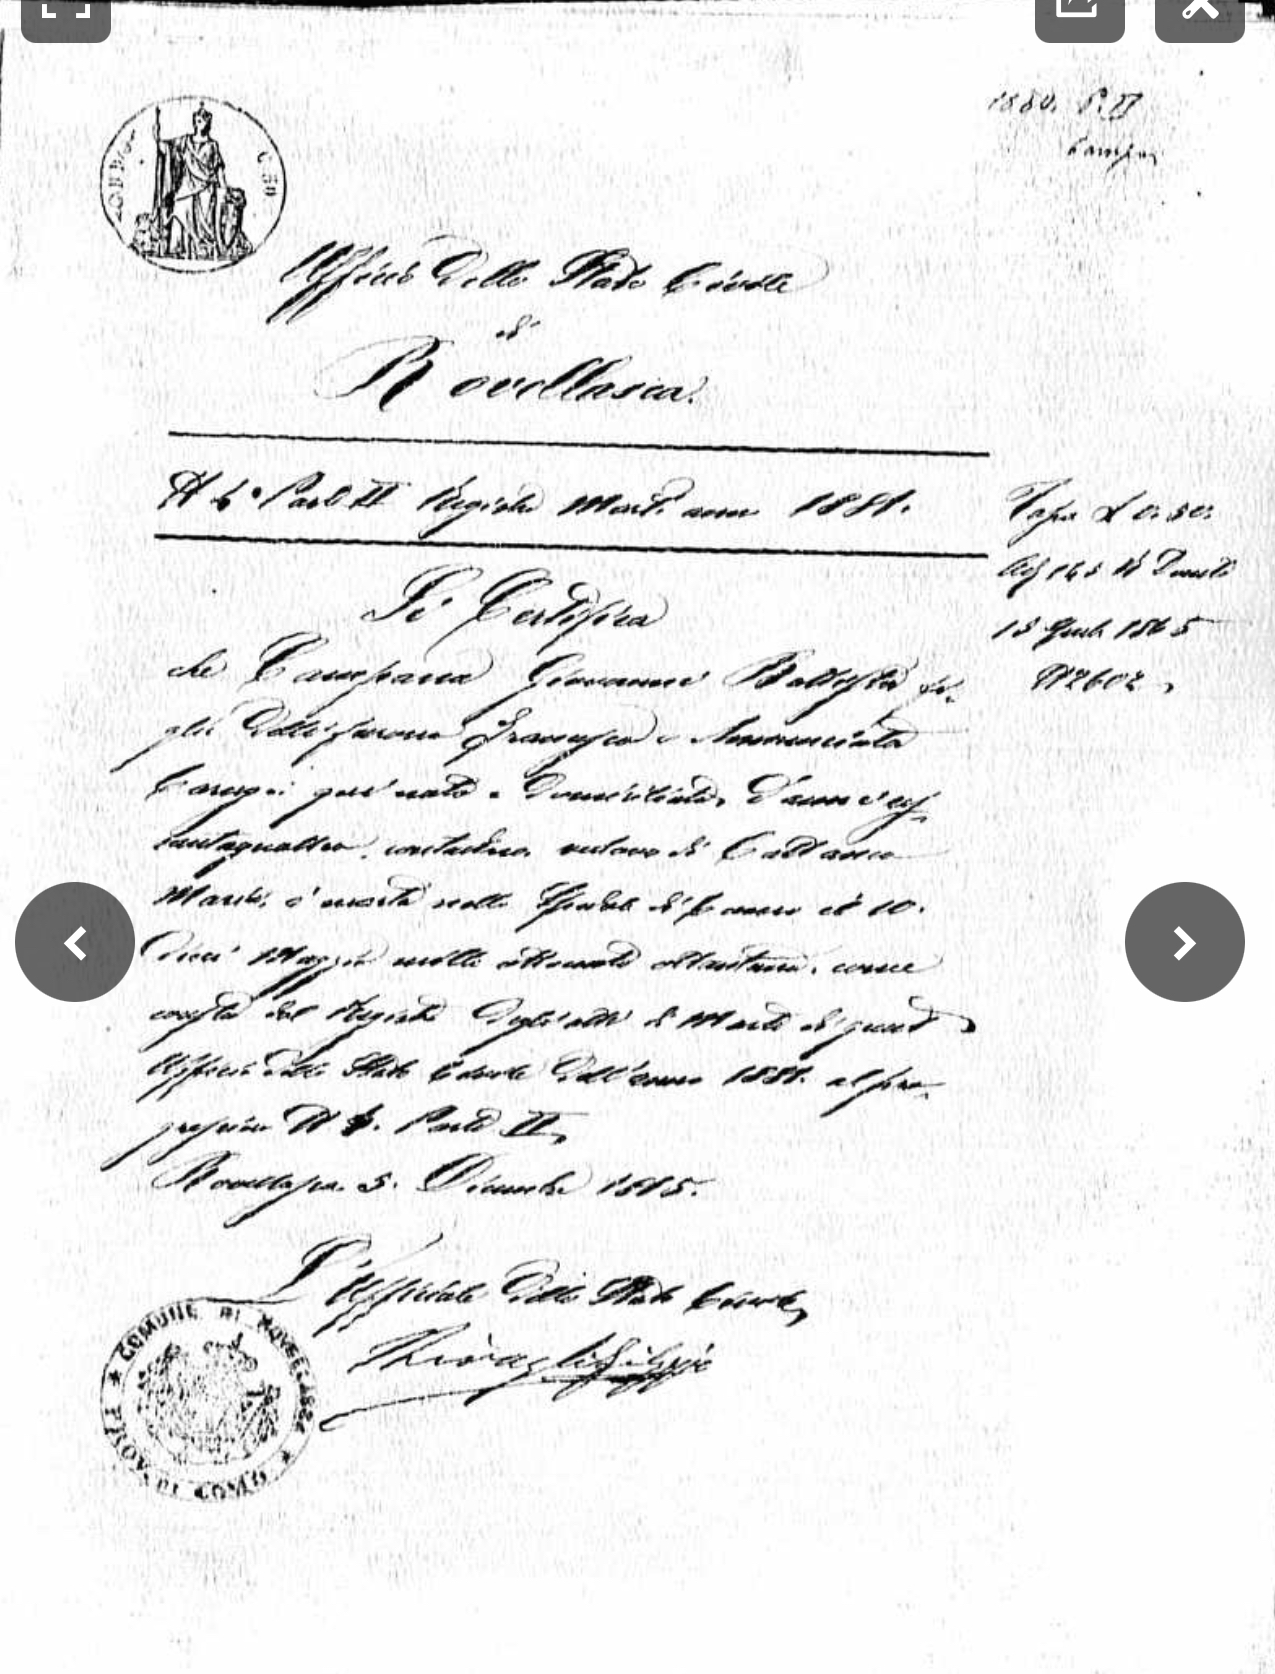 1880. P. II
Campa
Uffició dello Stato Civile
di
Rovellasca.
N 6° Parte II Registro Morti anno 1881.
Tassa L 0.50.
13 1865
N 2602
Si Certifica
che Campana Giovanni Battista fi-
glio delli furono Francesco e Annunciata
qui nato e domiciliato, d'anni ses-
santaquattro, contadino vedovo di Cattaneo
Maria, è morto nello Spedale di Como il 10.
dieci Maggio mille ottocento ottantuno, come
consta dal Registro degli atti di Morte di quest'
Ufficio dello Stato Civile dell'anno 1881. al pro-
gressivo N 6. Parte II,
Rovellasca. 5. Dicembre
L'Ufficiale dello Stato Civile,
COMUNE DI ROVELLASCA
PROV. DI COMO